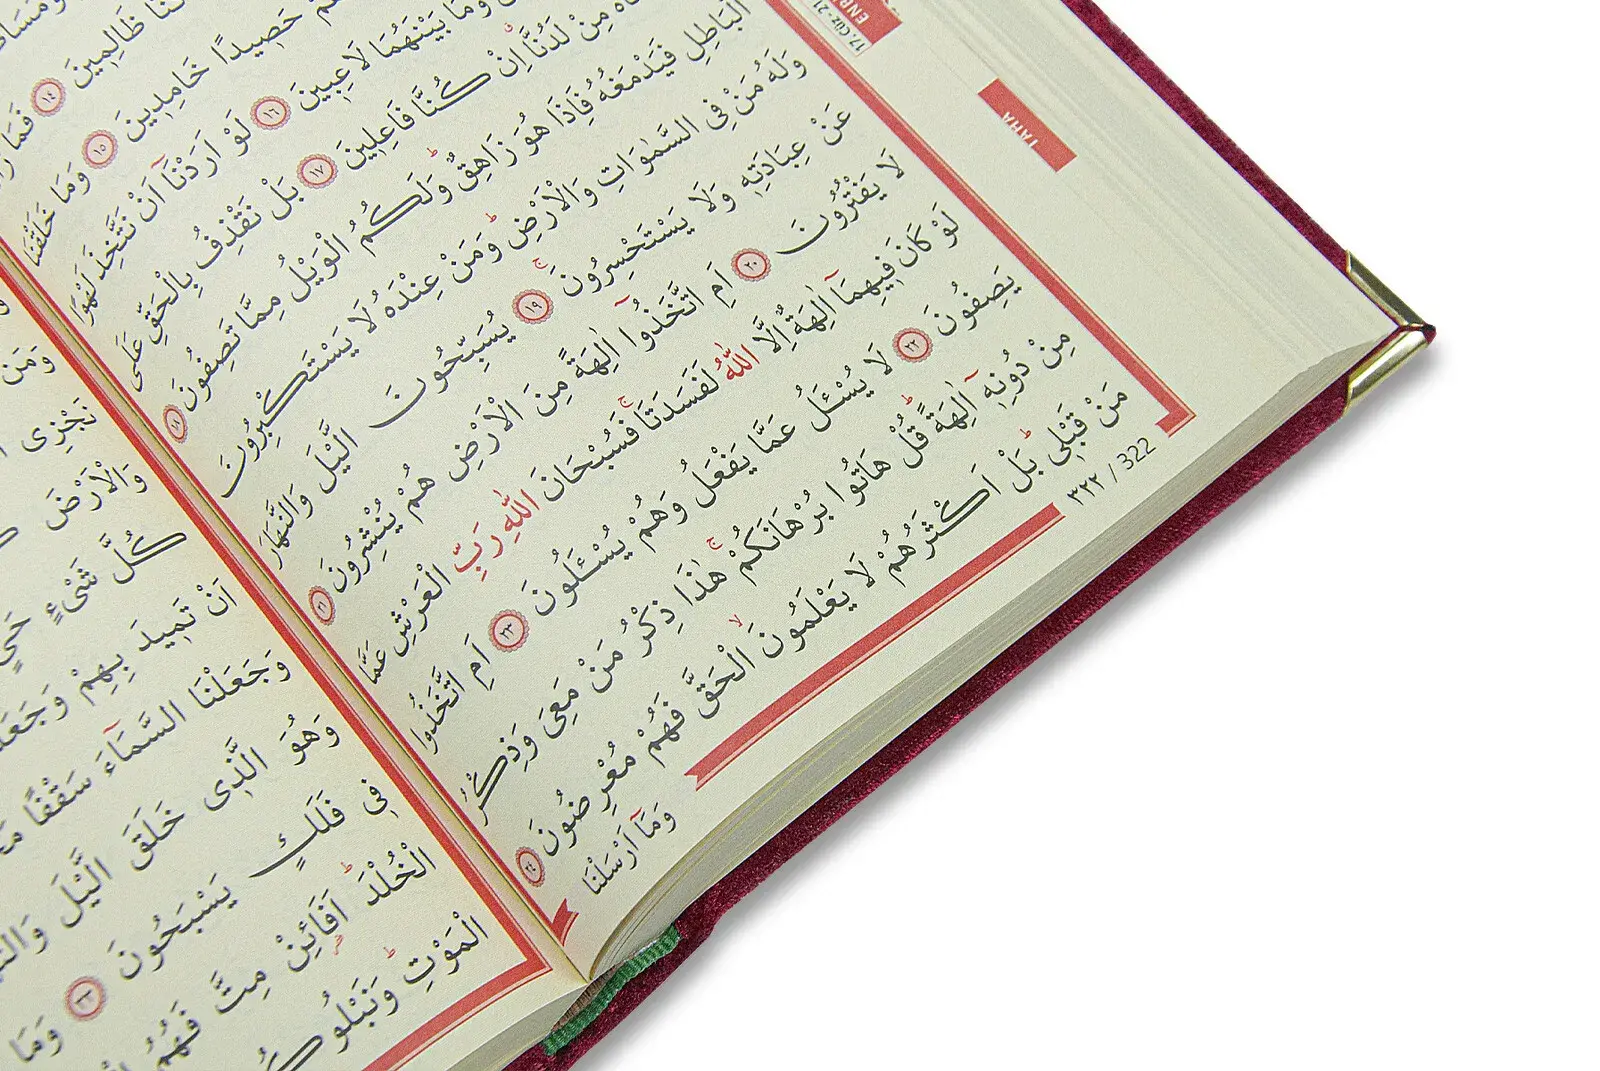 ظَالِمِينَ ١٤ فَمَا
حَصِيدًا خَامِدِينَ ١٥ وَمَا خَلَقْنَا
وَمَا بَيْنَهُمَا لَاعِبِينَ ١٦ لَوْ اَرَدْنَٓا اَنْ نَتَّخِذَ لَهْوًا
مِنْ لَدُنَّا اِنْ كُنَّا فَاعِلِينَ ١٧ بَلْ نَقْذِفُ بِالْحَقِّ عَلَى
الْبَاطِلِ فَيَدْمَغُهُ فَاِذَا هُوَ زَاهِقٌ وَلَكُمُ الْوَيْلُ مِمَّا تَصِفُونَ ١٨
وَلَهُ مَنْ فِي السَّمٰوَاتِ وَالْاَرْضِ وَمَنْ عِنْدَهُ لَا يَسْتَكْبِرُونَ
عَنْ عِبَادَتِهِ وَلَا يَسْتَحْسِرُونَ ١٩ يُسَبِّحُونَ الَّيْلَ وَالنَّهَارَ
لَا يَفْتُرُونَ ٢٠ اَمِ اتَّخَذُٓوا اٰلِهَةً مِنَ الْاَرْضِ هُمْ يُنْشِرُونَ ٢١
لَوْ كَانَ فِيهِمَٓا اٰلِهَةٌ اِلَّا اللّٰهُ لَفَسَدَتَا فَسُبْحَانَ اللّٰهِ رَبِّ الْعَرْشِ عَمَّا
يَصِفُونَ ٢٢ لَا يُسْـَٔلُ عَمَّا يَفْعَلُ وَهُمْ يُسْـَٔلُونَ ٢٣ اَمِ اتَّخَذُوا
مِنْ دُونِهِٓ اٰلِهَةً قُلْ هَاتُوا بُرْهَانَكُمْ هٰذَا ذِكْرُ مَنْ مَعِيَ وَذِكْرُ
مَنْ قَبْلِي بَلْ اَكْثَرُهُمْ لَا يَعْلَمُونَ الْحَقَّ فَهُمْ مُعْرِضُونَ ٢٤
وَمَٓا اَرْسَلْنَا
٣٢٢ / 322
17. CÜZ - 21
TAHA
وَمَنْ
نَجْزِي
وَالْاَرْضَ
كُلَّ شَيْءٍ حَيٍّ
اَنْ تَمِيدَ بِهِمْ وَجَعَلْنَا
وَجَعَلْنَا السَّمَٓاءَ سَقْفًا
وَهُوَ الَّذِي خَلَقَ الَّيْلَ
فِي فَلَكٍ يَسْبَحُونَ ٣٣ وَمَا
الْخُلْدَ اَفَا۬ئِنْ مِتَّ فَهُمُ
الْمَوْتِ وَنَبْلُوكُمْ